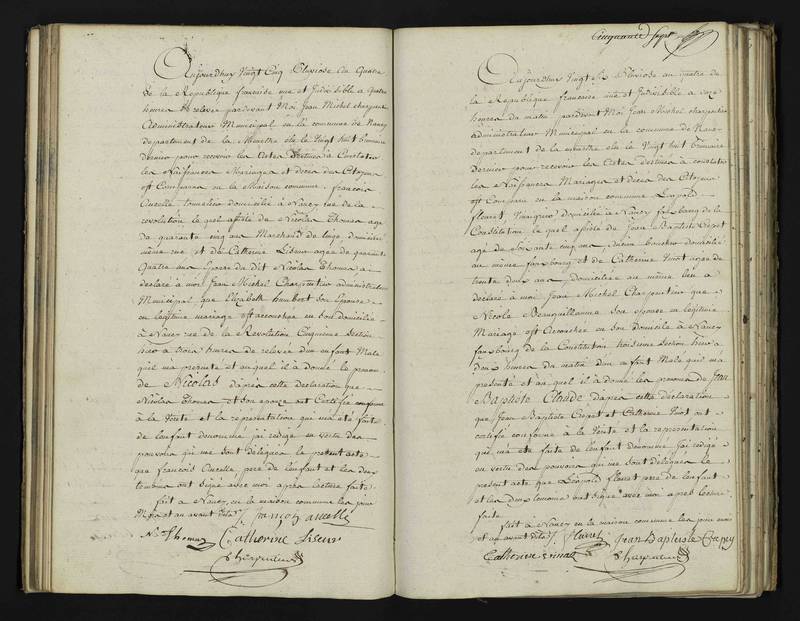 Aujourdhuy Vingt Cinq Pluviose du quatre
de la République francaise une et Indivisible a quatre
heures de relevée pardevant Moi Jean Michel charpentier
Administrateur Municipal en la commune de Nancy
departement de la Meurthe élu le Vingt huit brumaire
Dernier pour recevoir les Actes Destinés à Constater
les Naissances Mariages et décès des Citoyens
est Comparu en la Maison commune francois
tonnelier domicilié à Nancy rue de la
revolution le quel assisté de Nicolas Thomas agé
de quarante cinq ans Marchand de linge domicilié
même rue et de Catherine Liseur agée de quarante
Quatre ans épouse du dit Nicolas Thomas a
declaré à moi Jean Michel Charpentier administrateur
Municipal que Elizabeth humbert son Epouse
en légitime mariage est accouchée en son domicilie
à Nancy rue de la Revolution Cinquieme Section
hier a trois heures de relevée d'un enfant Male
quil ma presenté et au quel il à donné le prenom
de Nicolas dapres cette declaration que
Nicolas Thomas et son epouse ont Certifiée conforme
à la Verité et la représentation qui ma été faite
de l'enfant denommé j'ai redigé en vertu des
pouvoirs qui me sont délégués le present acte
que francois pere de l'enfant et les deux
temoins ont Signé avec moi après lecture faite
fait à Nancy en la maison commune les jour
Mois et an avant dits
Nas Thomas Catherine Liseur
Charpentier
Cinquante Sept
Aujourdhuy Vingt Pluviose an quatre de
la République francaise une et Indivisible à onze
heures du matin pardevant Moi Jean Michel charpentier
administrateur Municipal en la commune de Nancy
departement de la meurthe élu le Vingt huit brumaire
Dernier pour recevoir les Actes destinés à constater
les Naissances Mariages et décés des Citoyens
est Comparu en la maison commune Léopold
fleuret Vigneron domicilié à Nancy faubourg de la
Constitution le quel assisté de Jean Baptiste
agé de Soixante cinq ans ancien domicilié
au même faubourg et de Catherine agée de
trente deux ans domiciliée au même lieu a
déclaré à moi Jean Michel Charpentier que
Nicole son epouse en légitime
Mariage est Accouchée en son domicile à Nancy
fauxbourg de la Constitution troisieme Section hier a
deux heures du matin d'un enfant Male quil ma
présenté et au quel il à donné les prenoms de Jean
Baptiste Claude dapres cette déclaration
que Jean Baptiste et Catherine ont
certifié conforme à la Verité et la representation
qui ma été faite de l'enfant dénommé j'ai redigé
en vertu des pouvoirs qui me sont délégués le
présent acte que Léopold fleuret pere de l'enfant
et les deux temoins ont Signé avec moi apres lecture
faite
fait à Nancy en la maison commune les jour mois
et an avant dits fleuret Jean Baptiste
Catherine Charpentier